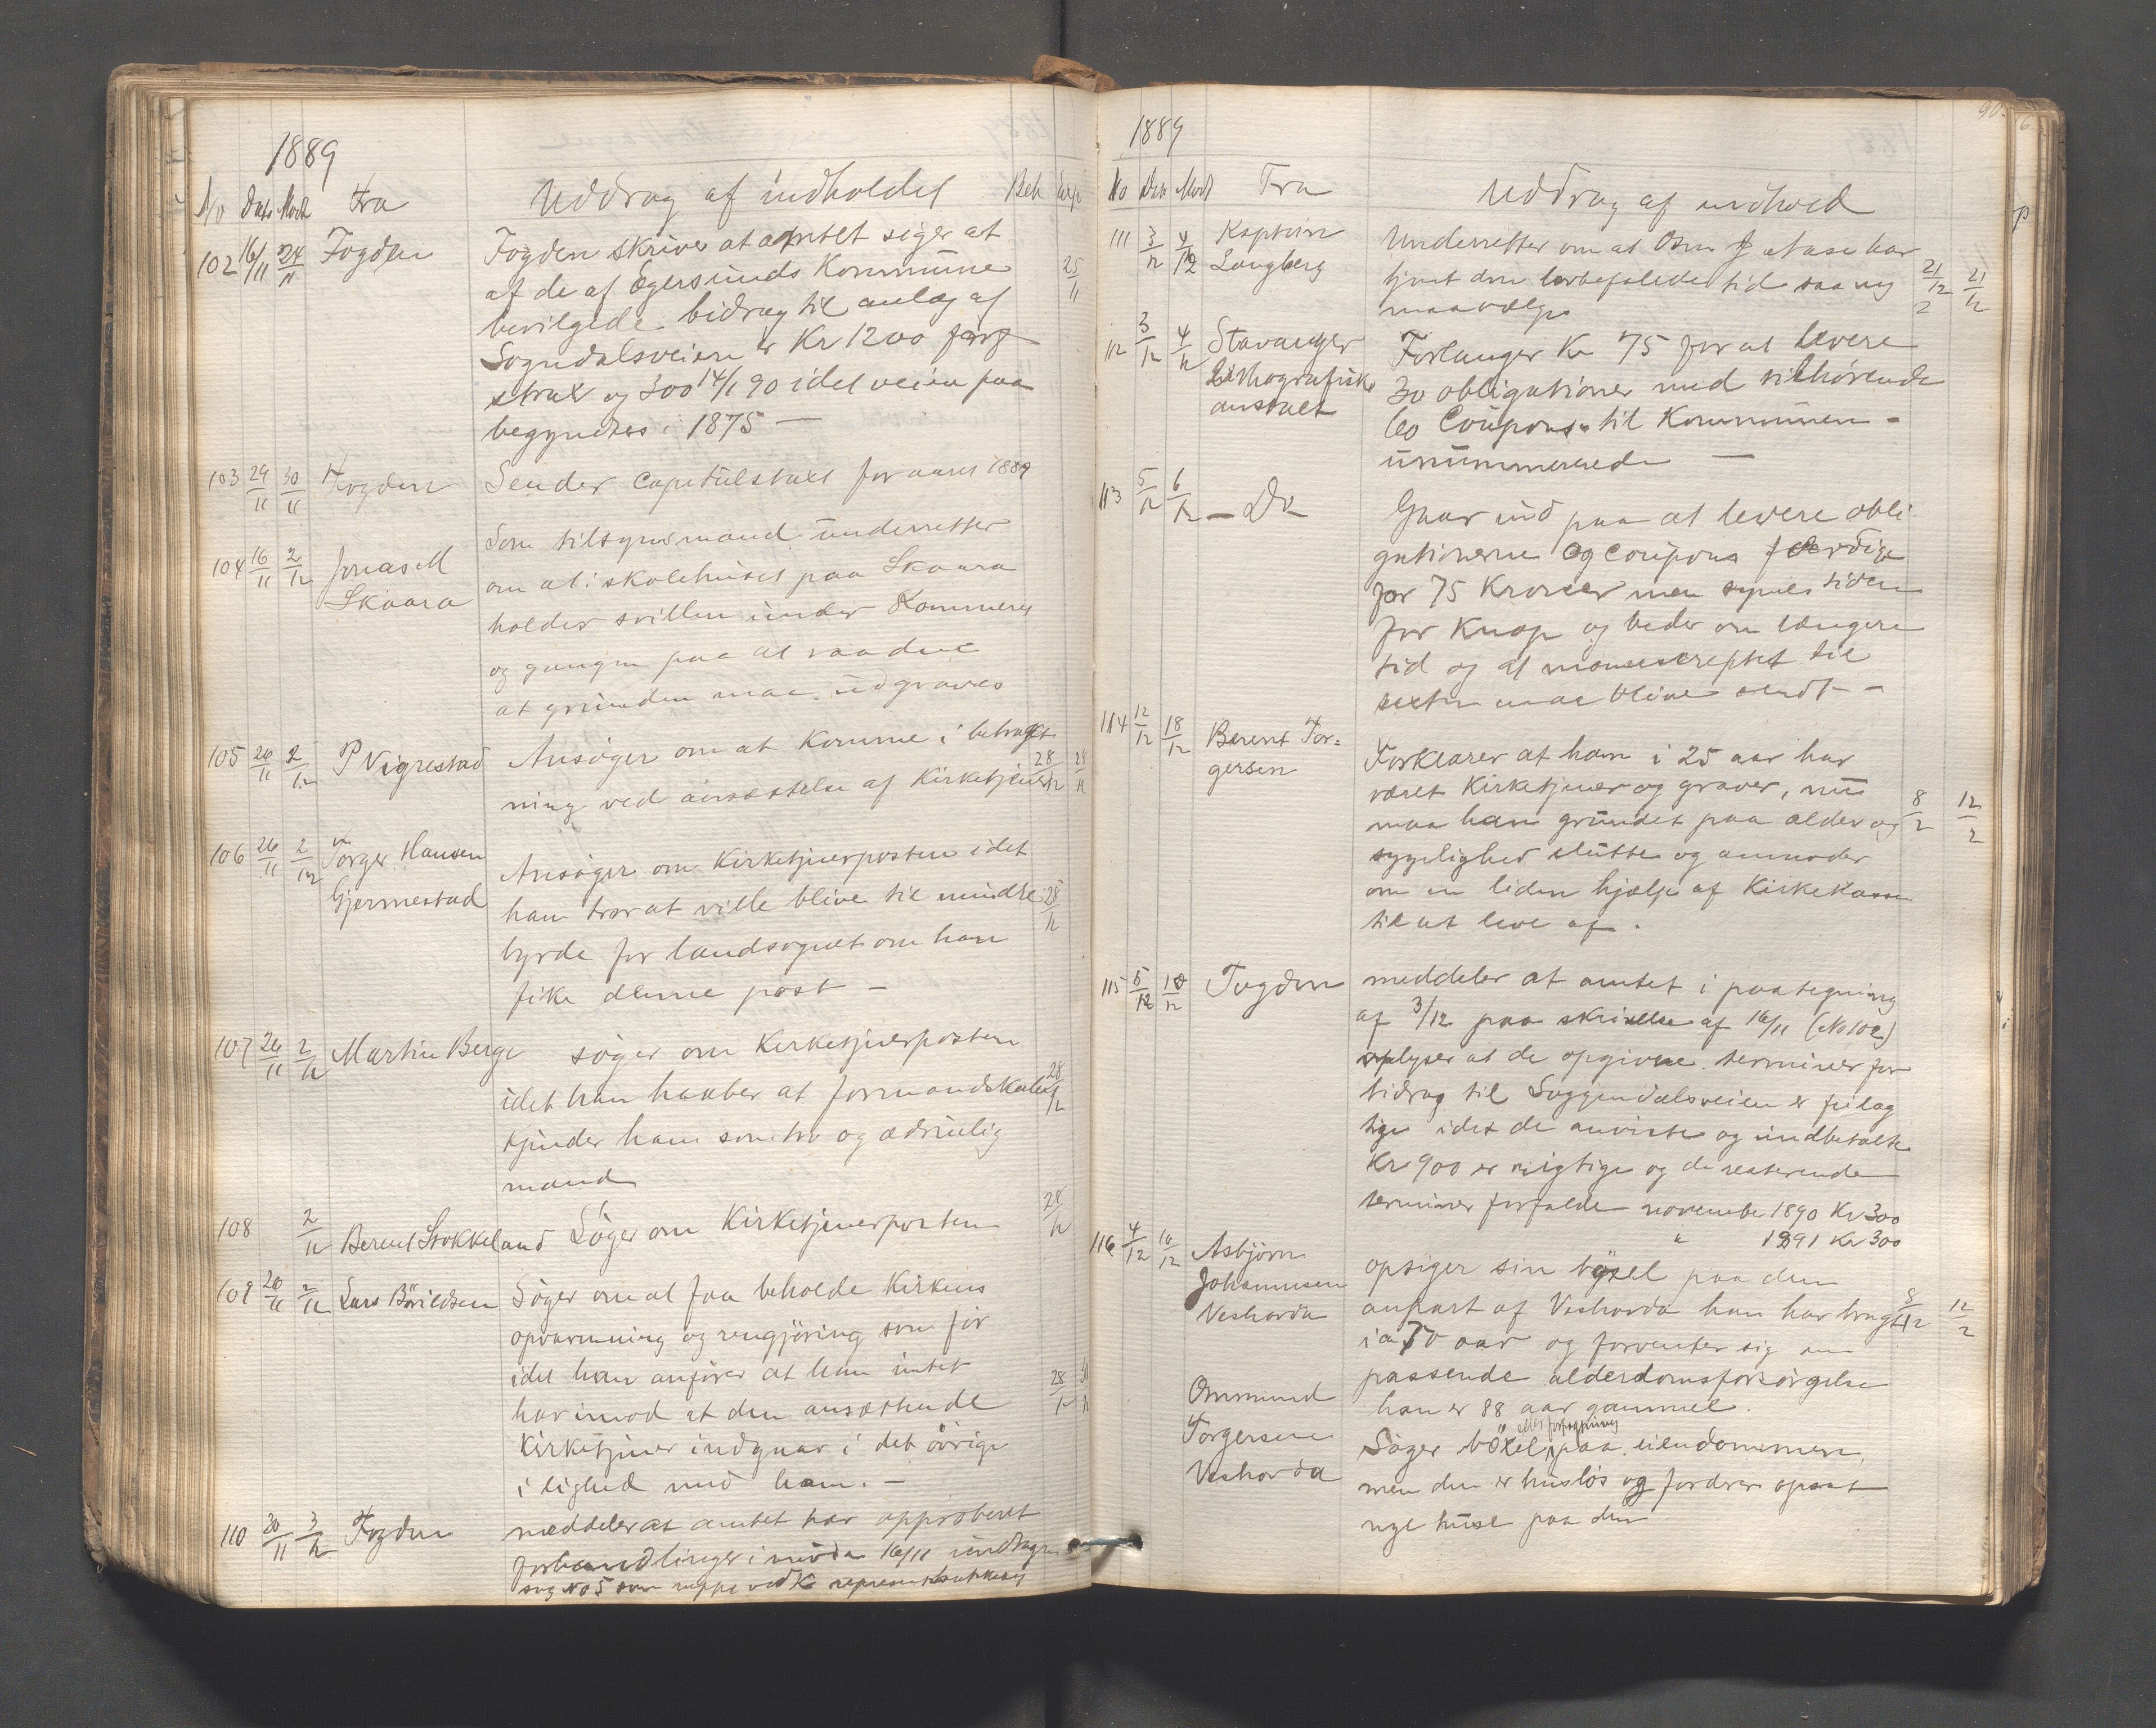 1889
No Dato Modt Fra Uddrag af indholdet Beh Exp
102 16/11 24/11 Fogden Fogden skriver at amtet siger at
af de af Egersunds Kommune 25/11
bevilgede bidrag til anlæg af
Sogndalsveien er Kr 1200
strax og 300 14/1 90 idet veien paa
begyndtes i 1875 —
103 29/11 30/11 Fogden Sender Capitulstaxt for aaret 1889
104 16/11 2/12 Jonas M Som tilsynsmand underretter
Skaara om at i skolehuset paa Skaara
holder svillen under Kammers
og gangen paa at raadne
at grunden maa udgraves
105 26/11 2/12 P Nigrestad Ansøger om at komme i betragt
ning ved ansættelse af Kirketjener 28/12 28/12
106 26/11 2/12 Torger Hansen Ansøger om Kirketjenerposten idet
Gjermestad han tror at ville blive til mindre 28/12
byrde for landsognet om han
fik denne post —
107 26/11 2/12 Martin Berge søger om Kirketjenerposten
idet han haaber at formandskabet 28/12
kjender ham som tro og ædruelig
mand
108 2/12 Berent Stokkeland Søger om Kirketjenerposten 28/12
109 26/11 2/12 Lars Bårildsen Søger om at faa beholde Kirkens
opvarmning og rengjöring som før
idet han anfører at han intet
har imod at den ansættende 28/12
Kirketjener indgaar i det övrige
i lighed med ham. —
110 30/11 3/12 Fogden meddeler at amtet har approberet
forhandlinger i møde 16/11 undtagen
sag No 5
1889
No Dato Modt Fra Uddrag af indhold
111 3/12 4/12 Kaptein Underretter om at Osm J Aase har
Langberg tjent den lovbefalede tid saa ny 21/12 21/12
maa vælges
112 3/12 4/12 Stavanger Forlanger Kr 75 for at levere
Lithografiske 30 obligationer med tilhörende
anstalt 60 Coupons til Kommunen -
unummererede —
113 5/12 6/12 — Do Gaar ind paa at levere obli
gationerne og Coupons færdige
for 75 Kroner men synes tiden
for knap og beder om længere
tid og at manuscreptet til
texten maa blive sendt —
114 12/12 18/12 Berent Tor=
gersen Forklarer at han i 25 aar har
været Kirketjener og graver, nu
maa han grundet paa alder og 8/2 12/2
sygelighed slutte og anmoder
om en liden hjælp af Kirkekassen
til at leve af.
115 5/12 18/12 Fogden meddeler at amtet i paategning
af 3/12 paa skrivelse af 16/11 (No 102)
oplyser at de opgivne terminer for
bidrag til Soggendalsveien er feilag
tige idet de anviste og indbetalte
Kr 900 er rigtige og de resterende
terminer forfalde november 1890 Kr 300
" 1891 Kr 300
116 4/12 16/12 Asbjörn opsiger sin bøxel paa den
Johannesen anpart af Veshovda han har brugt 12/2
Veshovda i a 50 aar og forventer sig en
passende alderdomsforsörgelse
Ommund han er 88 aar gammel.
Torgersen Söger böxel paa eiendommen,
Veshovda men den er huslös og fordrer opsat
nye huse paa den